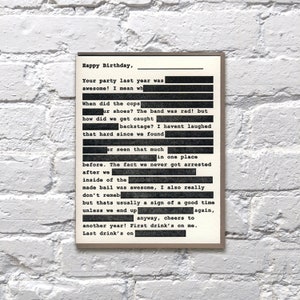 Happy Birthday,
Your party last year was
awesome! I mean wh
When did the cops
ur shoes? The band was rad! but
how did we get caught
backstage? I havent laughed
that hard since we found
ur seen that much
in one place
before. The fact we never got arrested
after we
inside of the
made bail was awesome, I also really
don't remeb
but thats usually a sign of a good time
unless we end up again,
anyway, cheers to
another year! First drink's on me.
Last drink's on